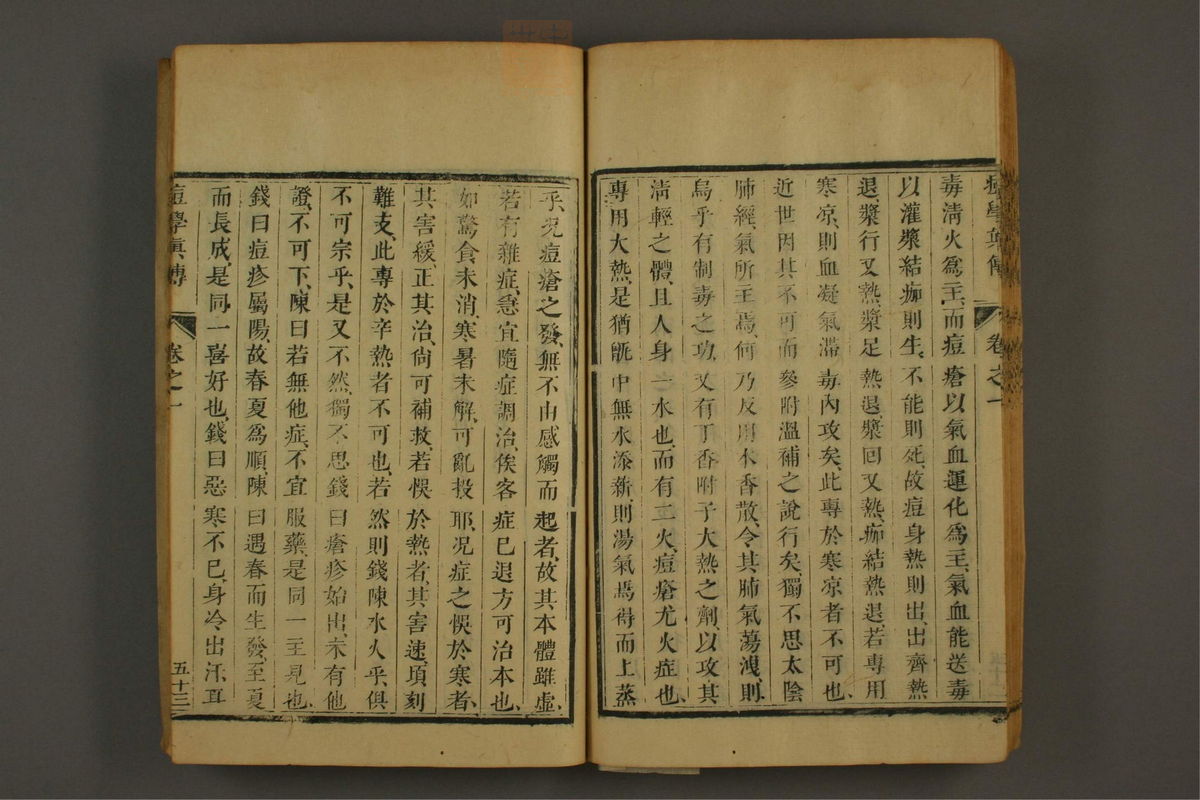 痘學真傳 卷之一
毒淸火爲主、而痘瘡以氣血運化爲主、氣血能送毒
以灌漿結痂則生、不能則死、故痘身熱則出、出齊熱
退、漿行又熱、漿足熱退、漿回又熱、痂結熱退、若專用
寒凉、則血凝氣滯毒內攻矣、此專於寒凉者不可也、
近世因其不可而參附溫補之說行矣、獨不思太陰
肺經、氣所主焉、何乃反用木香散、令其肺氣蕩洩、則
烏乎有制毒之功、又有丁香附子大熱之劑、以攻其
淸輕之體、且人身一水也、而有二火、痘瘡尤火症也、
專用大熱、是猶甑中無水添新、則湯氣焉得而上蒸
乎、況痘瘡之發、無不由感觸而起者、故其本體雖虛、
若有雜症、急宜隨症調治、俟客症已退、方可治本也、
如驚食未消、寒暑未解、可亂投耶、况症之悞於寒者、
其害緩、正其治、尙可補救、若悞於熱者、其害速、項刻
難支、此專於辛熱者不可也、若然則錢陳水火乎、俱
不可宗乎、是又不然、獨不思錢曰瘡疹始出、未有他
證、不可下、陳曰若無他症、不宜服藥、是同一主見也、
錢曰痘疹屬陽、故春夏爲順、陳曰遇春而生發、至夏
而長成、是同一喜好也、錢曰惡寒不已、身冷出汗、耳
痘學真傳 卷之一 五十三